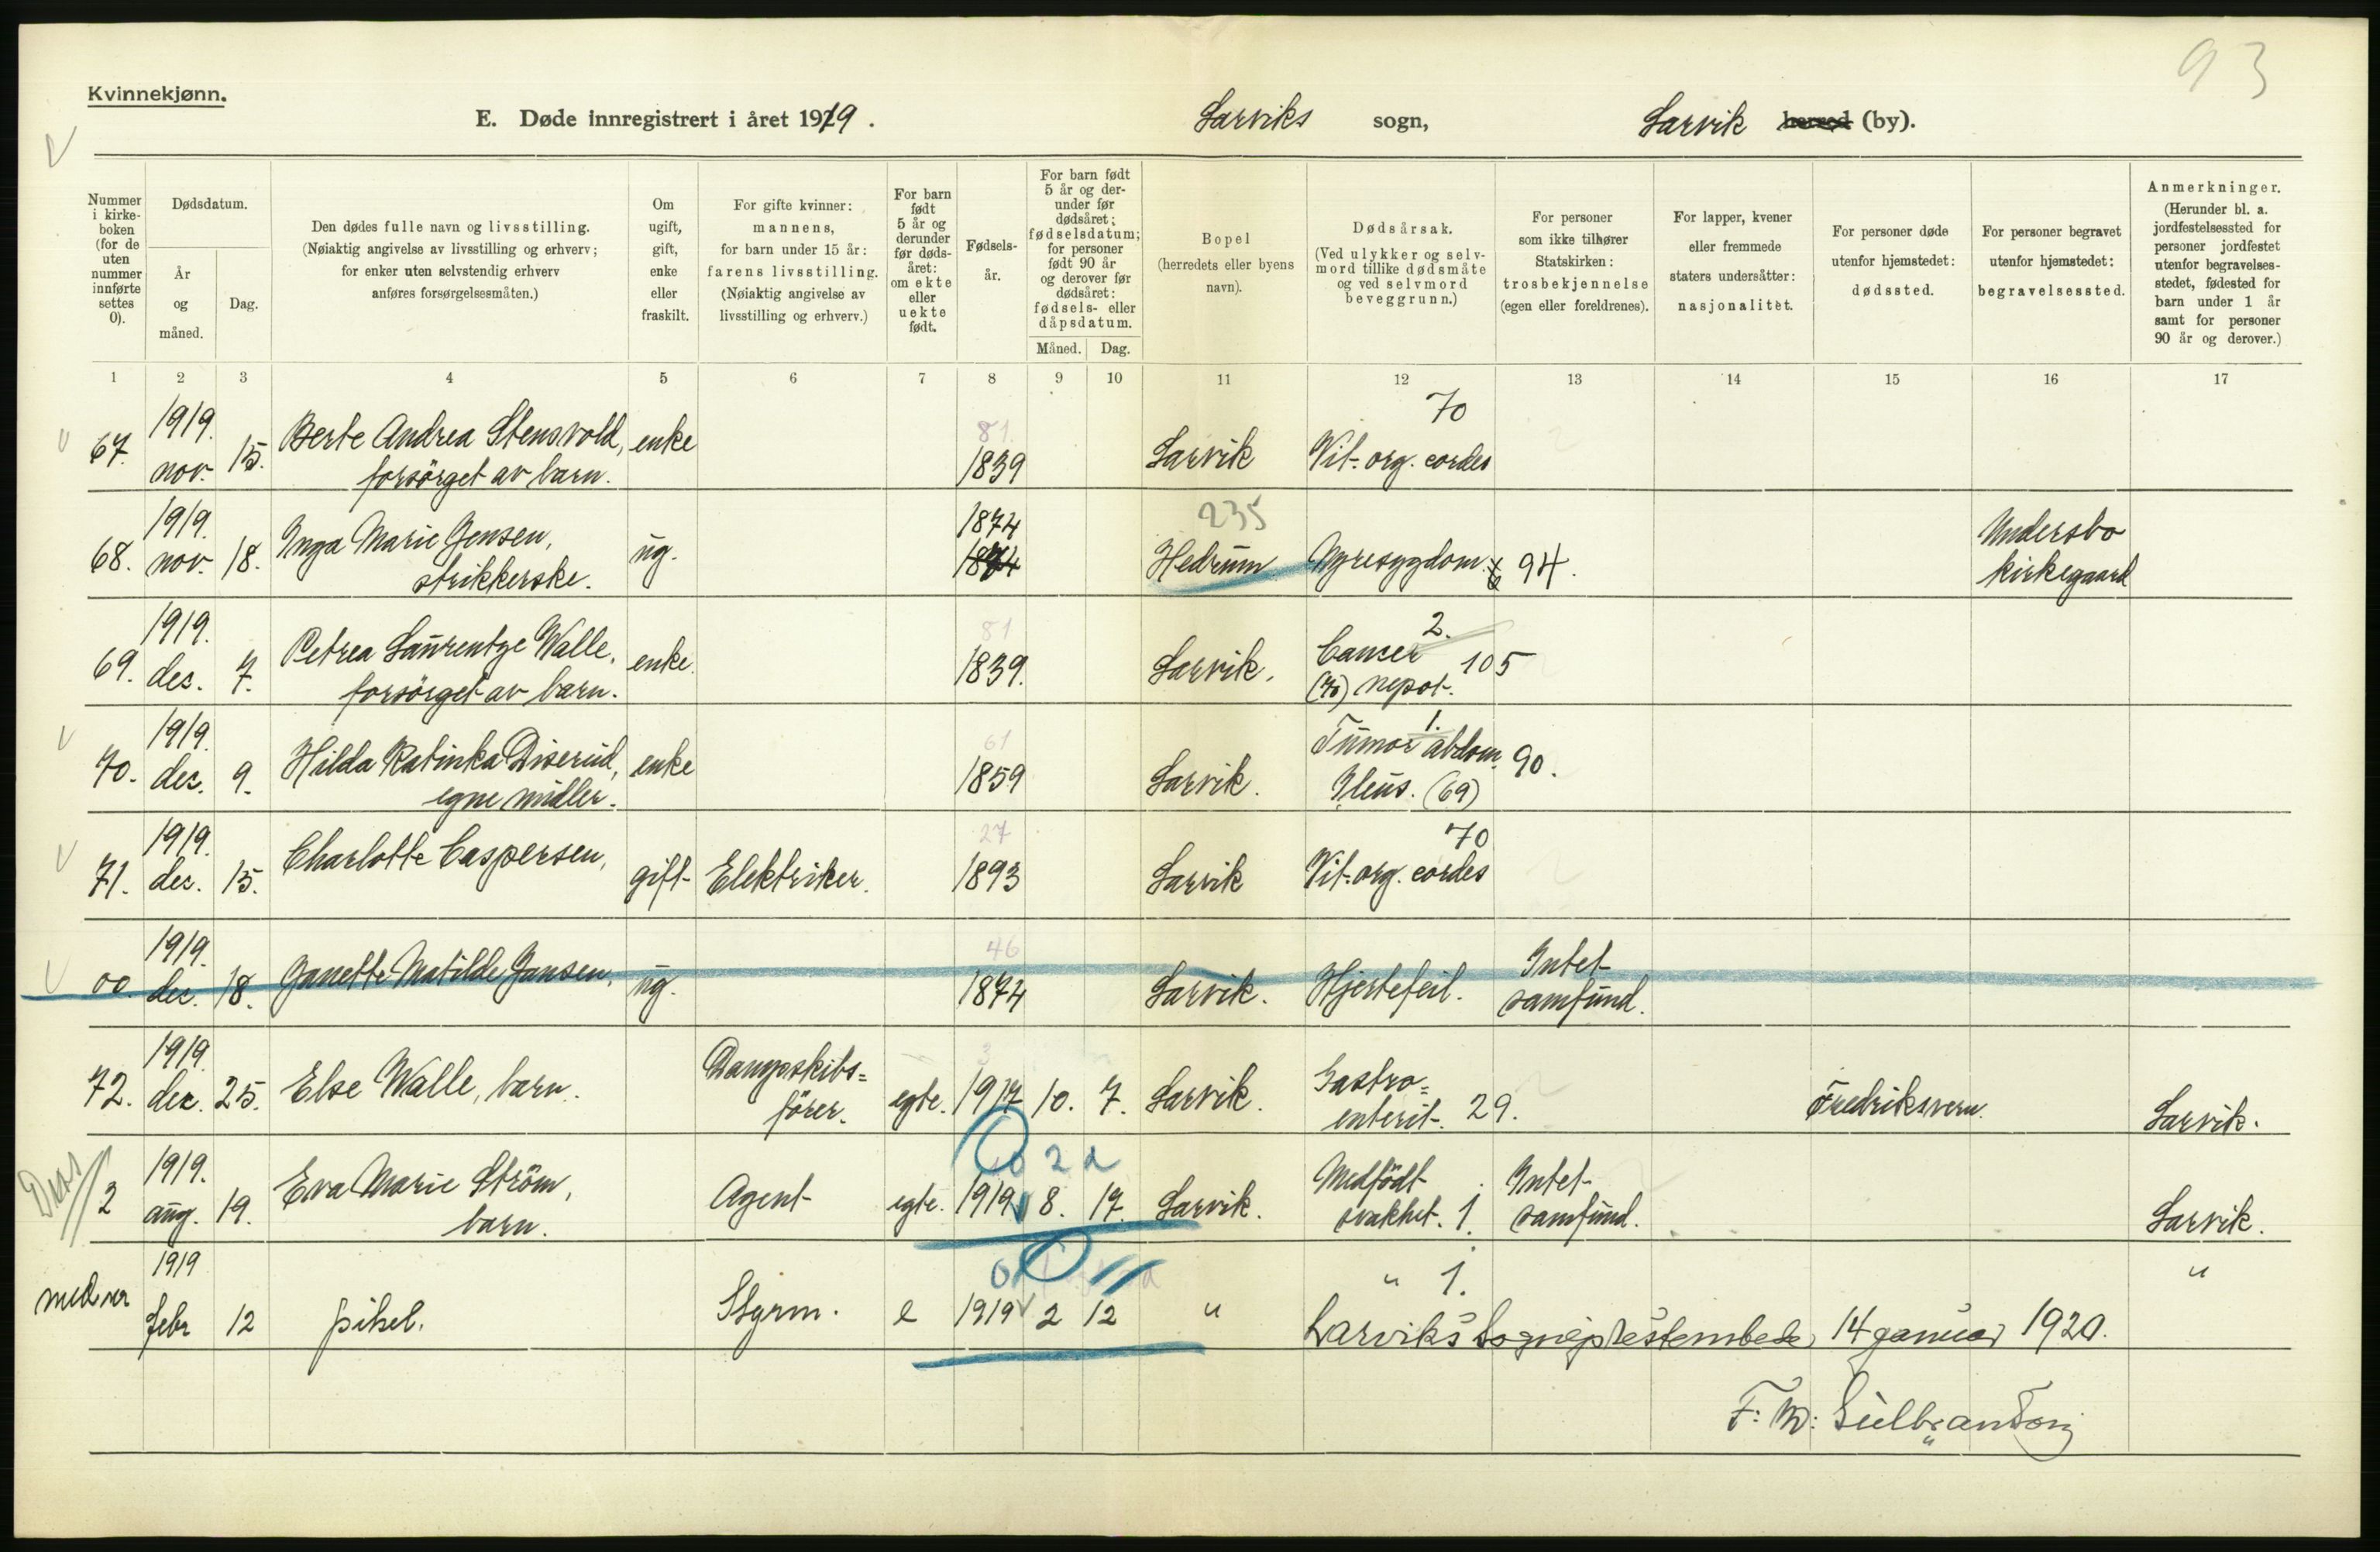 93
Kvinnekjønn.
E. Døde innregistrert i året 1919.
Larviks sogn,
Larvik herred (by).
Nummer i kirkeboken (for de uten nummer innførte settes 0).
Dødsdatum.
År og måned.
Dag.
Den dødes fulle navn og livsstilling.
(Nøiaktig angivelse av livsstilling og erhverv;
for enker uten selvstendig erhverv
anføres forsørgelsesmåten.)
Om ugift, gift, enke eller fraskilt.
For gifte kvinner:
mannens,
for barn under 15 år:
farens livsstilling.
(Nøiaktig angivelse av
livsstilling og erhverv.)
For barn født 5 år og derunder før dødsåret: om ekte eller uekte født.
Fødselsår.
For barn født 5 år og derunder før dødsåret; fødselsdatum; for personer født 90 år og derover før dødsåret: fødsels- eller dåpsdatum.
Måned. Dag.
Bopel
(herredets eller byens navn).
Dødsårsak.
(Ved ulykker og selvmord tillike dødsmåte og ved selvmord beveggrunn.)
For personer
som ikke tilhører
Statskirken:
trosbekjennelse
(egen eller foreldrenes).
For lapper, kvener
eller fremmede
staters undersåtter:
nasjonalitet.
For personer døde
utenfor hjemstedet:
dødssted.
For personer begravet
utenfor hjemstedet:
begravelsessted.
Anmerkninger.
(Herunder bl. a. jordfestelsessted for personer jordfestet utenfor begravelsesstedet, fødested for barn under 1 år samt for personer 90 år og derover.)
1 2 3 4 5 6 7 8 9 10 11 12 13 14 15 16 17
67. 1919. nov. 15. Berte Andrea Stensvold, forsörget av barn. enke 81. 1839 Larvik 70 Vit. org. cordes
68. 1919. nov. 18. Inga Marie Jensen, strikkerske. ug. 1874 1874 235 Hedrum Nyresygdom. 94. Undersbo kirkegaard
69. 1919. des. 7. Petrea Laurentze Walle, forsörget av barn. enke. 81 1839. Larvik. 2. Cancer (70) nepot. 105
70. 1919. des. 9. Hilda Katinka Diserud, egne midler. enke 61 1859 Larvik. 1. Tumor abdom. Ileus. (69) 90.
71. 1919. des. 15. Charlotte Caspersen, gift Elektriker. 27 1893 Larvik 70 Vit. org. cordes
00. 1919. des. 18. Janette Matilde Jansen, ug. 46 1874 Larvik. Hjertefeil. Intet samfund.
72. 1919 des. 25. Else Walle, barn. Dampskibsförer. egte. 3 1917 10. 7. Larvik. Gastroenterit. 29. Fredriksvern. Larvik.
2 1919. aug. 19. Eva Marie Ström, barn. Agent egte. 0 2 d 1919 8. 17. Larvik. Medfödt svakhet. 1. Intet samfund. Larvik.
1919 febr 12 pikeb. Styrm. e 1919 2 12 " " 1. "
Larviks Sogneprestembede, 14 januar 1920.
F. W. Gulbranson